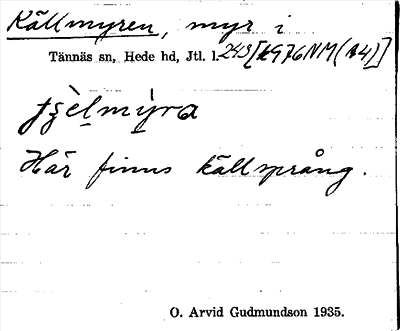 Källmyren, myr i
Tännäs sn, Hede hd, Jtl. l. 243 [1976NM(14)]
Här finns källsprång.
O. Arvid Gudmundson 1935.